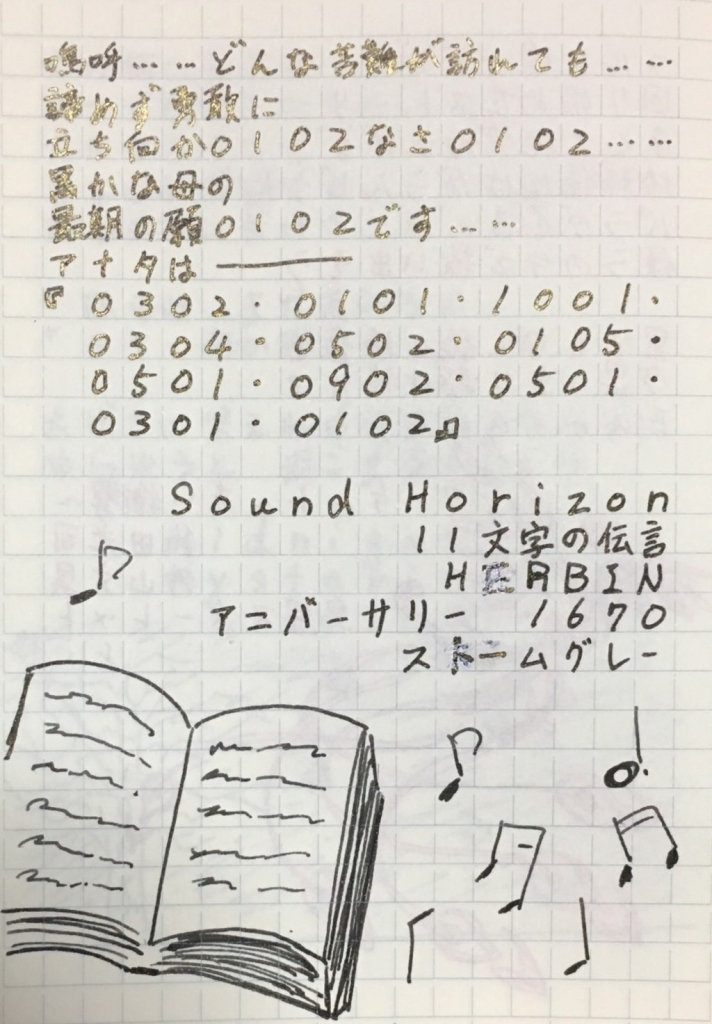 嗚呼……どんな苦難が訪れても……
諦めず勇敢に
立ち向か0102なさ0102……
愚かな母の
最期の願0102です……
アナタは――――
『0302・0101・1001・
0304・0502・0105・
0501・0902・0501・
0301・0102』
Sound Horizon
11文字の伝言
HERBIN
アニバーサリー 1670
ストームグレー